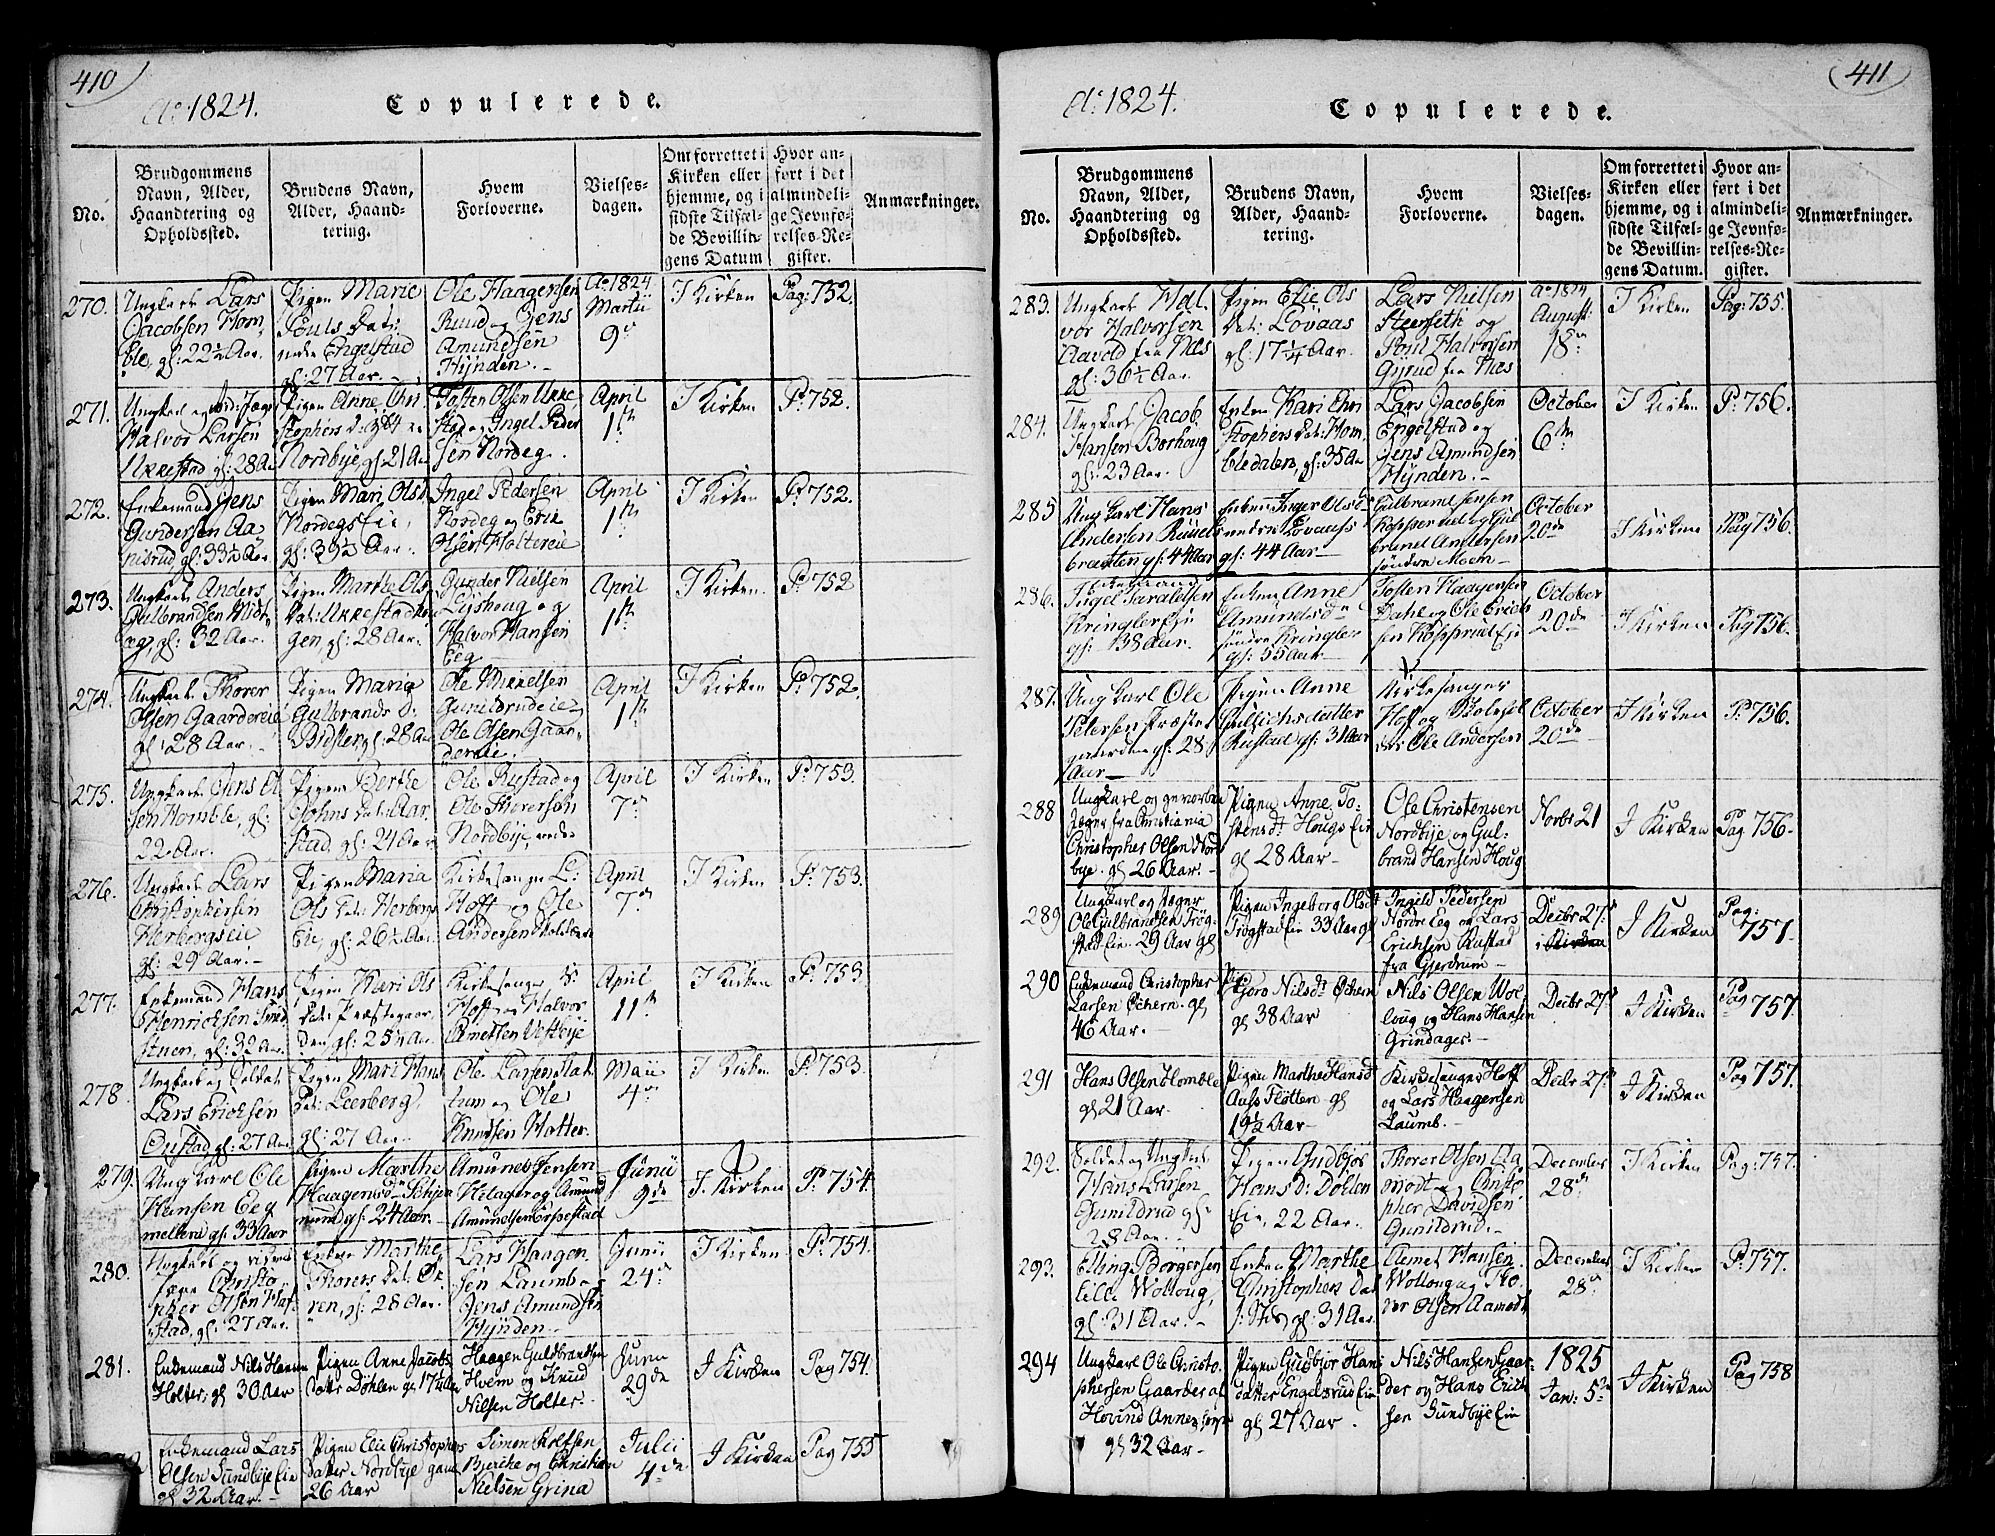 410
Ao 1824.
Copulerede.
No.
Brudgommens
Navn, Alder,
Haandtering og
Opholdssted.
Brudens Navn,
Alder, Haand-
tering.
Hvem
Forloverne.
Vielses-
dagen.
Om forrettet i
Kirken eller
hjemme, og i
sidste Tilfæl-
de Bevillin-
gens Datum
Hvor an-
ført i det
almindeli-
ge Jevnfø-
relses-Re-
gister.
Anmærkninger.
270.
Ungkarl Lars
Jacobsen Hom
ble, gl: 22½ Aar.
Pigen Marie
Pouls Dat:
Engelstad
gl: 27 Aar.
Ole Haagensen
Ruud og Jens
Amundsen
Hÿnden.
Ao 1824
Martii
9de
I Kirken
Pag: 752.
271.
Halvor Larsen
Ukkestad gl: 28 Aar
Pigen Anne Chri
stophers Dat
Nordbye, gl: 21 Aar
Tosten Olsen Ukke
stad og Ingel Peder
sen Nordeg.
April
1ste
I Kirken
P: 752.
272.
Enkemand Jens
Gundersen Aa
nisrud, gl: 33½ Aar
Pigen Mari Ols D
Nordegs Eie,
gl: 39½ Aar.
Ingel Pedersen
Nordeg og Erik
Olsen Holtereie
April
1ste
I Kirken
P: 752.
273.
Ungkarl Anders
Gulbrandsen
gl: 32 Aar.
Pigen Marthe Ols
Dat: Ukkestad
gen, gl: 28 Aar.
Gunder Nielsen
Lÿshoug og
Halvor Hansen
Eeg
April
1ste
I Kirken.
P: 752
274.
Ungkarl Thorer
Olsen Gaardereie
gl: 28 Aar.
Pigen Maria
Gulbrands D.
Brøster, gl: 28 Aar
Ole Mikkelsen
Gunildrudeie
Ole Olsen Gaar
dereie.
April
1ste
I Kirken
P: 752.
275.
Ungkarl Jens Ol
sen Homble, gl:
22 Aar.
Pigen Berthe
Johns Dat: Aar
stad, gl: 24 Aar
Ole Rustad og
Ole Thorersen
Nordbye,
April
7de
I Kirken
P: 753.
276.
Ungkarl Lars
Christophersen
Herbergseie
gl: 29 Aar.
Pigen Maria
Ols Dat: Herbergs
Eie, gl: 26½ Aar.
Kirkesanger
Hoff og Ole
Andersen
April
7de
I Kirken
P: 753.
277.
Enkemand Hans
Henricksen
stuen, gl: 32 Aar.
Pigen Kari Ols
Dat: Præstegaar
den, gl: 25½ Aar.
Kirkesanger
Hoff og Halvor
Vestbye
April
11te
I Kirken
P: 753
278.
Ungkarl og Soldat
Lars Ericksen
gl: 27 Aar
Pigen Mari Hans
Dat: Leerberg,
gl: 27 Aar.
Ole Larsen Rat
tum og Ole
Knudsen Hatter.
Maii
4de
I Kirken
P: 753.
279.
Ungkarl Ole
Hansen Eeg
mellem gl: 33 Aar
Pigen Marthe
Haagensdr Schjen
rund gl: 24 Aar.
Amund Jensen
Hilager og Amund
Amundsen Erpestad
Junii
9de
I Kirken
P: 754.
280.
Christo
pher Olsen Haf
stad, gl: 27 Aar.
Enken Marthe
Thorers Dat:
gl: 28 Aar.
Lars Haagen
sen Laumb og
Jens Amundsen
Hÿnden
Junii
24de
I Kirken
P: 754.
281.
Enkemand Nils Hansen
Holter, gl 30 Aar
Pigen Anne Jacobs
datter Døhlen gl 17½ Aar
Haagen Guldbrandsen
Hvem og Knud
Nilsen Holter.
Juni
29de
I Kirken
Pag 754.
Enkemand Lars
Olsen Sundbye Eie
gl 32 Aar.
Pigen Elie Christophers
datter Nordbye
26 Aar
Simen Rolfsen
Bjerche og Christian
Nielsen Grina
Julii
4de
I Kirken
Pag 755
411
Ao 1824.
Copulerede.
No.
Brudgommens
Navn, Alder,
Haandtering og
Opholdssted.
Brudens Navn,
Alder, Haand-
tering.
Hvem
Forloverne.
Vielses-
dagen.
Om forrettet i
Kirken eller
hjemme, og i
sidste Tilfæl-
de Bevillin-
gens Datum.
Hvor an-
ført i det
almindeli-
ge Jevnfø-
relses-Re-
gister.
Anmærkninger.
283.
Ungkarl Hal
vor Halvorsen
Aavold fra Næs
gl: 36½ Aar.
Pigen Elie Ols
Dat: Løvaas
gl: 17¼ Aar.
Lars Nielsen
Steerseth og
Poul Halvorsen
Gyrud fra Næs
Ao 1824
August:
18de
I Kirken
Pag: 755.
284.
Ungkarl Jacob
Hansen Borhoug
gl: 23 Aar.
Enken Kari Chri
stophers Dat: Hom
bledalen, gl: 35 Aar
Lars Jacobsen
Engelstad og
Jens Amundsen
Hÿnden.
October
6te
I Kirken
P: 756.
285
Ungkarl Hans
Andersen
braaten gl: 44 Aar
Enken Inger Ols D
nedre Løvaas
gl: 44 Aar
Gulbrand Jensen
Kopperud og Gul
brand Andersen
søndre Moem
October
20de
I Kirken
Pag 756.
286.
Enkemand
Ingel Taraldsen
Kringlereje
gl: 38 Aar.
Enken Anne
Amundsdr
søndre Kringler
gl: 55 Aar
Tosten Haagensen
Dahl og Ole Erich
sen Kopperud Eje
October
20de
I Kirken
Pag 756.
287.
Ungkarl Ole
Petersen Præste
gaarden gl: 28
Aar
Pigen Anne
Gulbrichsdatter
Rustad gl: 31 Aar
Kirkesanger
Hoff og
Ole Andersen
October
20de
I Kirken
P: 756.
288
Ungkarl og gevorben
Jæger fra Christiania
Christopher Olsen Nord
bye. gl 26 Aar.
Pigen Anne To
stensdr Hougs Eie
gl 28 Aar
Ole Christensen
Nordbye og Gul
brand Hansen Houg
Novbr 21
I Kirken
Pag 756
289
Ungkarl og Jæger
Ole Gulbrandsen Trøg
stad Eie. 29 Aar gl
Pigen Ingeborg Olsdr
Trøgstad Eie 33 Aar gl
Ingeld Pedersen
Nordre Eeg og Lars
Erichsen Rustad
fra Gjerdrum
Decbr 27de
i Kirken
I Kirken
Pag:
757
290
Enkemand Christopher
Larsen Økern. gl
46 Aar.
Pigen Goro Nilsdr Økern
gl 38 Aar
Nils Olsen Wol
loug og Hans Hansen
Grindager.
Decbr 27de
I Kirken
Pag 757.
291
Hans Olsen Homble
gl 21 Aar.
Pigen Marthe Hansd
Aass Fløtten gl
19½ Aar
Kirkesanger Hoff
og Lars Haagensen
Laumb.
Decbr 27de
I Kirken
Pag 757.
292.
Soldat og Ungkarl
Hans Larsen
Gunildrud gl:
28 Aar.
Pigen Gudbjør
Hans D: Døhlen
Eie, 22 Aar.
Thorer Olsen Aa
modt og Christo
pher Davidsen
Gunildrud.
December
28de
I Kirken
Pag: 757.
293.
Elling Børgersen
lille Wolloug,
gl: 31 Aar.
Enken Marthe
Christophers Dat
gl: 31 Aar.
Amet Hansen
Wolloug og Tho
rer Olsen Aamodt
December
28de
I Kirken
P: 757.
294
Ungkarl Ole Christo
phersen Gaarder af
Hovind Annex sogn
gl 32 Aar
Pigen Gudbjør Hans
datter Engelsrud Eie
gl 27 Aar.
Nils Hansen Gaar
der og Hans Erich
sen Sundbye Eie
1825
Jan: 5te
I Kirken
Pag 758